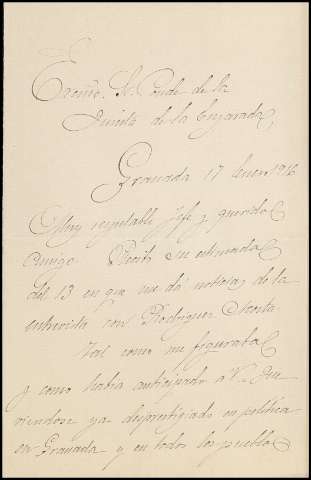 Excmo. Sr. Conde de la
Quinta de la Enjarada
Granada 17 Enero 1916
Muy respetable jefe y querido
amigo: Recibí su estimada
del 13 en que me dá noticias de la
entrevista con Rodriguez Acosta
Tal como me figuraba
y como habia anticipado á V.
viendose ya desprestigiado en politica
en Granada y en todos los pueblos